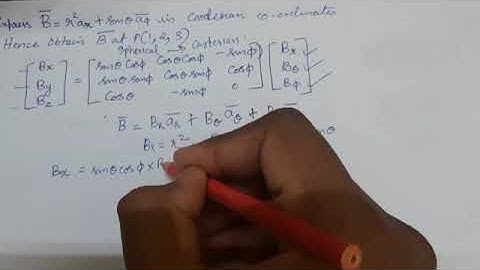 Express B̅ = r² a̅x + sinθ a̅φ in cartesian co-ordinates
Hence obtain B̅ at P(1, 2, 3)
spherical → cartesian.
[Bx By Bz] = [sinθ cosφ cosθ cosφ -sinφ
sinθ sinφ cosθ sinφ cosφ
cosθ -sinθ 0] [Bx Bθ Bφ]
∴ B̅ = Br a̅r + Bθ a̅θ +
Br = r² sinθ
Bx = sinθ cosφ ×